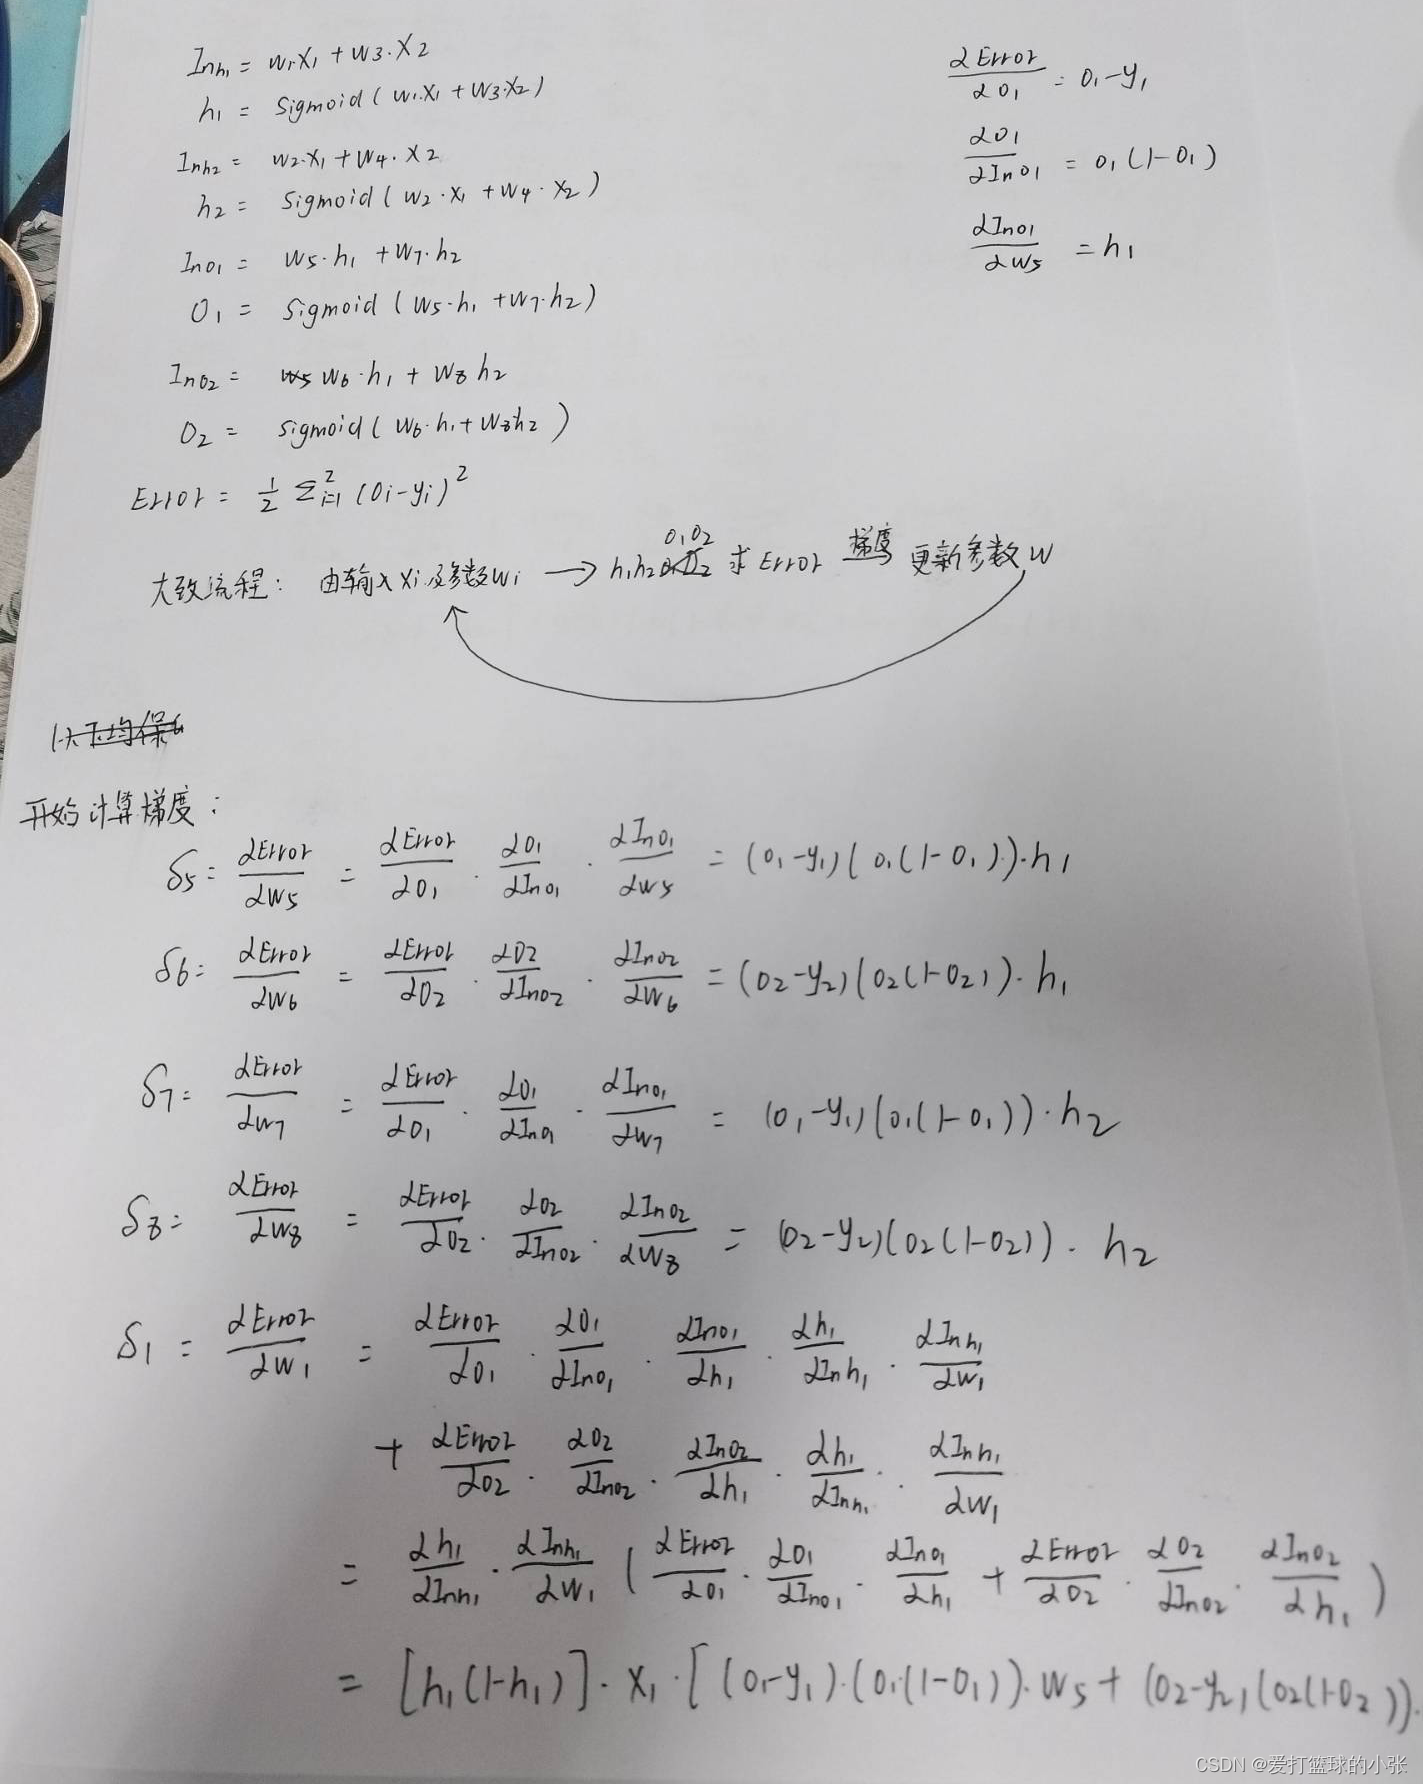 Inh₁ = w₁·x₁ + w3·x2
h₁ = sigmoid(w₁·x₁ + w3·x2)
Inh2 = w2·x₁ + w4·x2
h2 = sigmoid(w2·x₁ + w4·x2)
Ino₁ = w5·h₁ + w7·h2
O₁ = sigmoid(w5·h₁ + w7·h2)
Ino2 = w6·h₁ + w8 h2
O2 = sigmoid(w6·h₁ + w8h2)
Error = 1/2 Σ²i=1 (Oi-yi)²
∂Error/∂O₁ = O₁-y₁
∂O₁/∂Ino₁ = O₁(1-O₁)
∂Ino₁/∂w5 = h₁
大致流程: 由输入xi及参数wi → h₁h2 O₁O2 求Error 梯度 更新参数w
开始计算梯度:
δ5= ∂Error/∂w5 = ∂Error/∂O₁ · ∂O₁/∂Ino₁ · ∂Ino₁/∂w5 = (O₁-y₁)(O₁(1-O₁))·h₁
δ6= ∂Error/∂w6 = ∂Error/∂O2 · ∂O2/∂Ino2 · ∂Ino2/∂w6 = (O2-y2)(O2(1-O2))·h₁
δ7= ∂Error/∂w7 = ∂Error/∂O₁ · ∂O₁/∂Ino₁ · ∂Ino₁/∂w7 = (O₁-y₁)(O₁(1-O₁))·h2
δ8= ∂Error/∂w8 = ∂Error/∂O2 · ∂O2/∂Ino2 · ∂Ino2/∂w8 = (O2-y2)(O2(1-O2))·h2
δ1 = ∂Error/∂w₁ = ∂Error/∂O₁ · ∂O₁/∂Ino₁ · ∂Ino₁/∂h₁ · ∂h₁/∂Inh₁ · ∂Inh₁/∂w₁
+ ∂Error/∂O2 · ∂O2/∂Ino2 · ∂Ino2/∂h₁ · ∂h₁/∂Inh₁ · ∂Inh₁/∂w₁
= ∂h₁/∂Inh₁ · ∂Inh₁/∂w₁ (∂Error/∂O₁ · ∂O₁/∂Ino₁ · ∂Ino₁/∂h₁ + ∂Error/∂O2 · ∂O2/∂Ino2 · ∂Ino2/∂h₁)
= [h₁(1-h₁)]·x₁·[(O₁-y₁)·(O₁(1-O₁))·w5 + (O2-y2)(O2(1-O2))·
CSDN @爱打篮球的小张